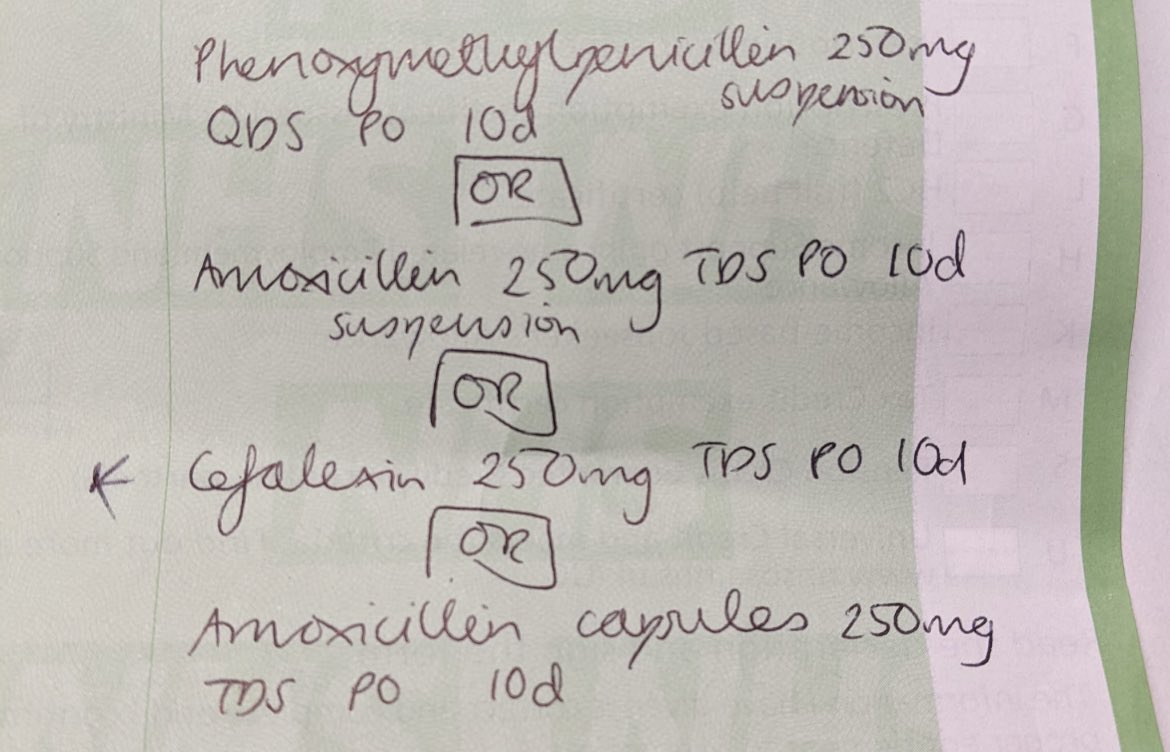 Phenoxymethylpenicillin 250mg
suspension
QDS PO 10d
OR
Amoxicillin 250mg TDS PO 10d
suspension
OR
Cefalexin 250mg TDS PO 10d
OR
Amoxicillin capsules 250mg
TDS PO 10d